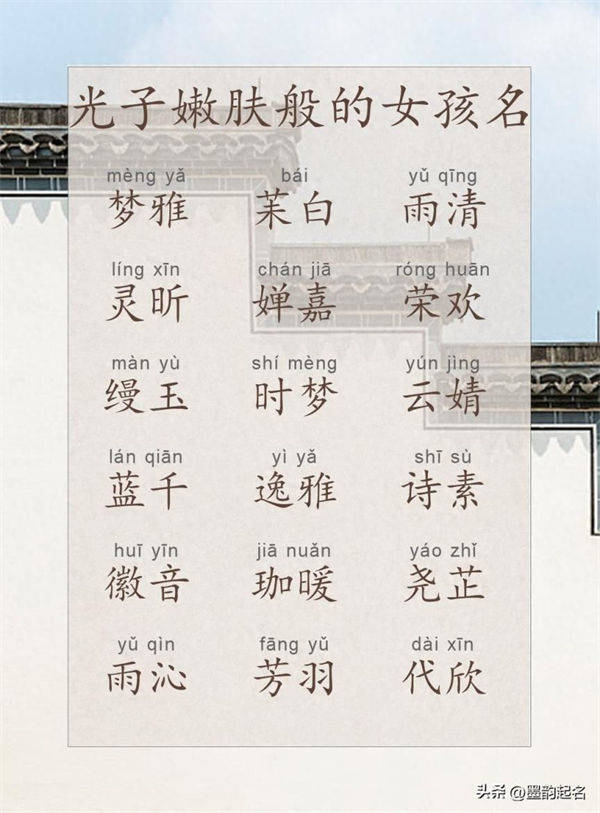 光子嫩肤般的女孩名
mèng yǎ bái yǔ qīng
梦雅 苿白 雨清
líng xīn chán jiā róng huān
灵昕 婵嘉 荣欢
màn yù shí mèng yún jìng
缦玉 时梦 云婧
lán qiān yì yǎ shī sù
蓝千 逸雅 诗素
huī yīn jiā nuǎn yáo zhǐ
徽音 珈暖 尧芷
yǔ qìn fāng yǔ dài xīn
雨沁 芳羽 代欣
头条 @墨韵起名